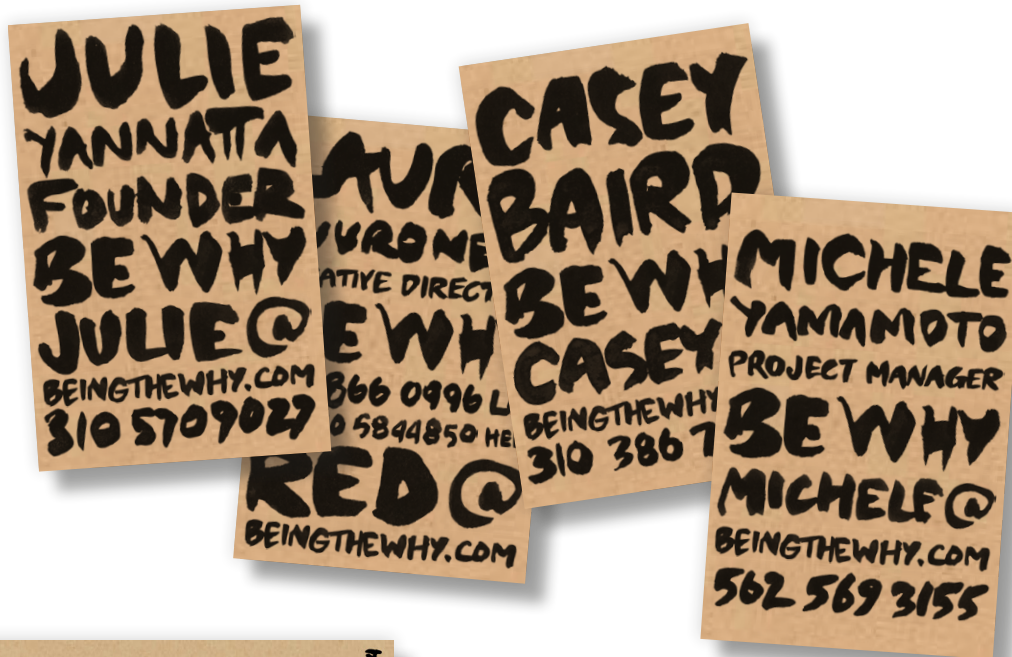 JULIE
YANNATTA
FOUNDER
BE WHY
JULIE@
BEINGTHEWHY.COM
310 5709027
AUR
UROME
ATIVE DIRECT
E WH
866 0996 L
0 5844850 HE
RED@
BEINGTHEWHY.COM
CASEY
BAIRD
BE WH
CASEY
BEINGTHEWHY
310 386 7
MICHELE
YAMAMOTO
PROJECT MANAGER
BE WHY
MICHELE@
BEINGTHEWHY.COM
562 569 3155